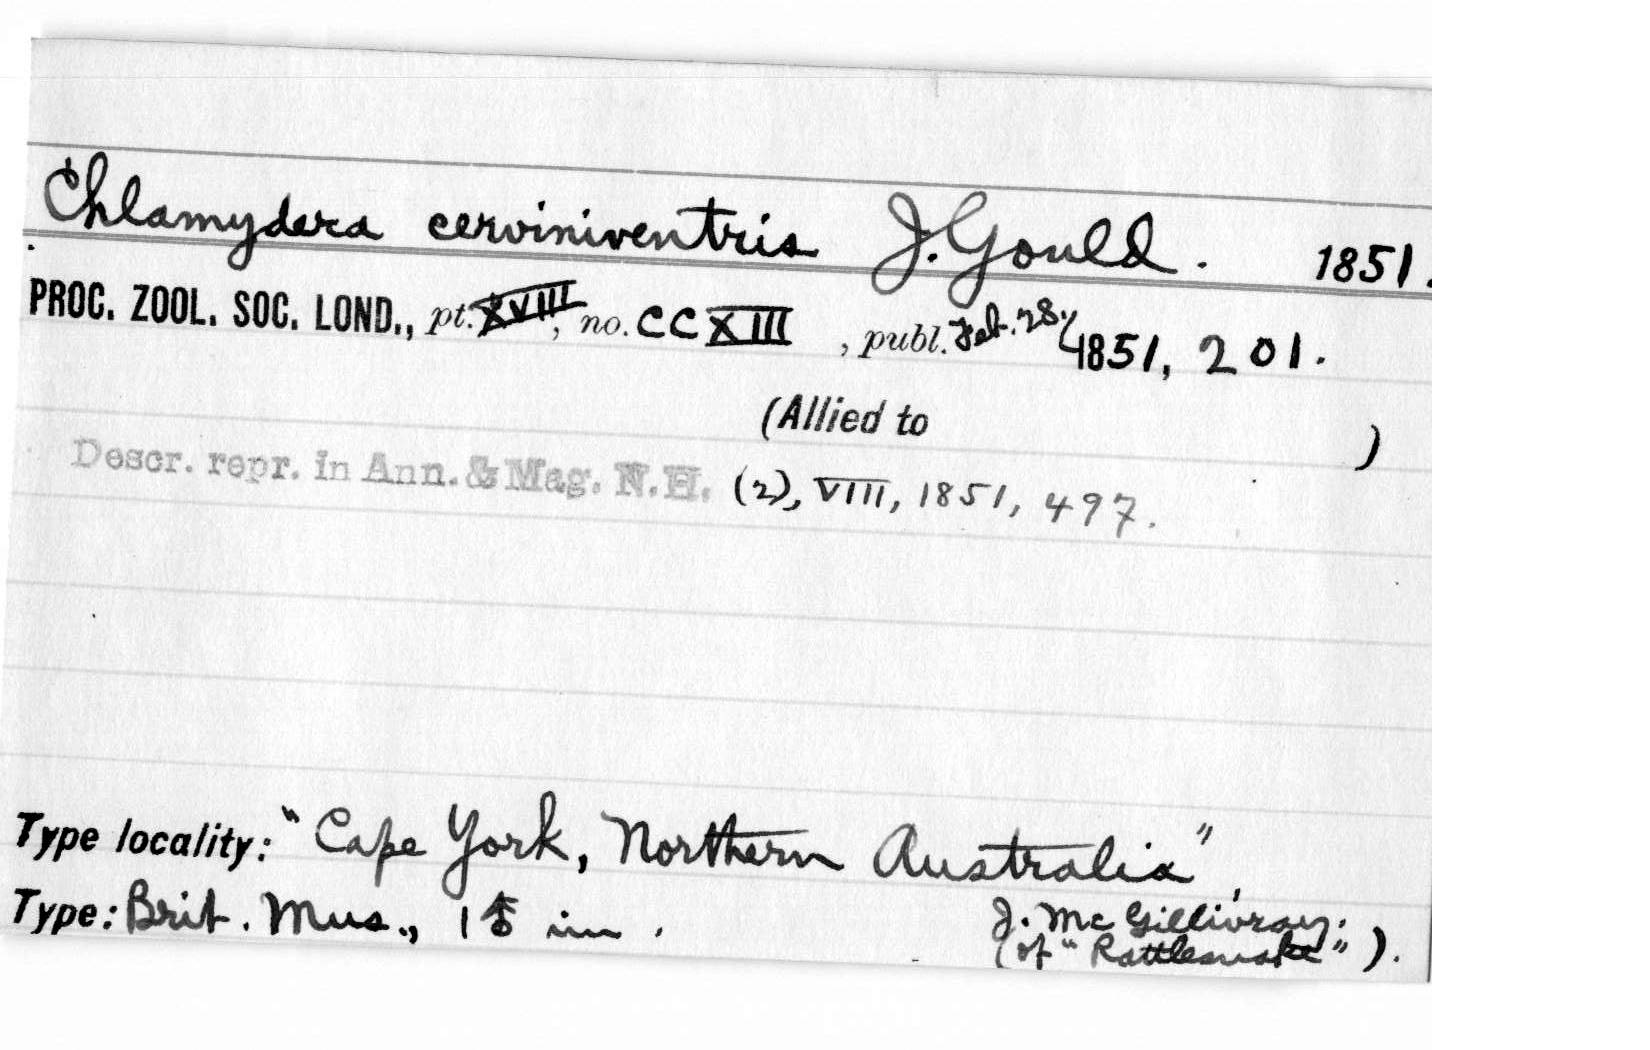 Chlamydera cerviniventris J. Gould. 1851.
PROC. ZOOL. SOC. LOND., pt. XVIII, no. CCXIII , publ. Feb. 28, 1851, 201.
(Allied to )
Descr. repr. in Ann. & Mag. N.H. (2), VIII, 1851, 497.
Type locality: "Cape York, Northern Australia",
Type: Brit. Mus., 1 im. J. McGillivray;
(of "Rattlesnake").